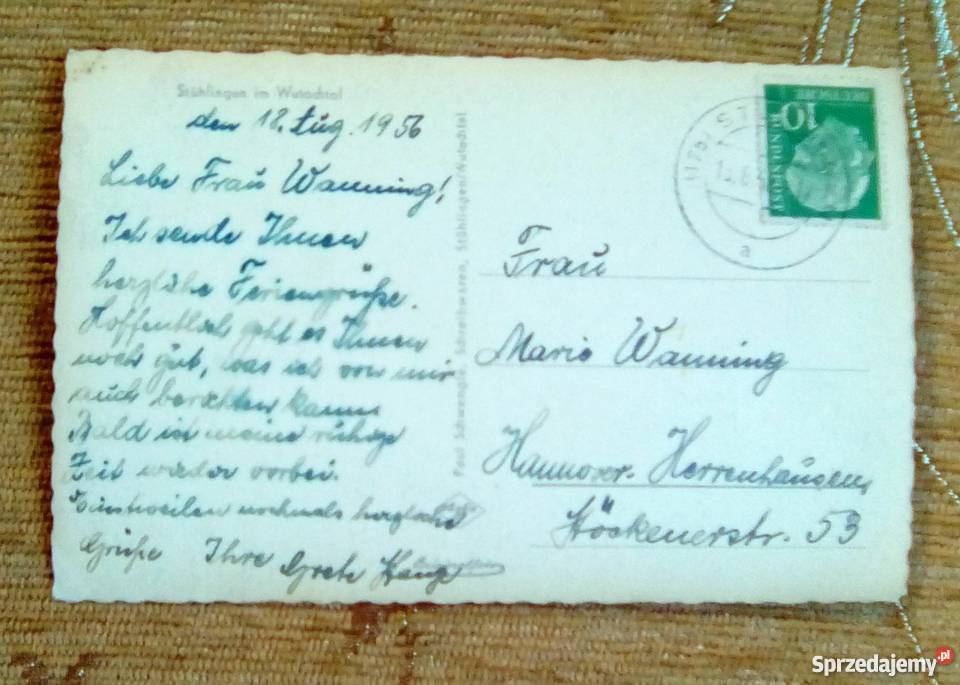 Stühlingen im Wutachtal
den 12. Aug. 1956
Liebe Frau Wanning!
Ich sende Ihnen
herzliche Feriengrüße.
Hoffentlich geht es Ihnen
noch gut, was ich von mir
auch berichten kann
Bald ist meine ruhige
Zeit wieder vorbei.
Einstweilen nochmals herzliche
Grüße Ihre Grete
Paul Schwengle, Schreibwaren, Stühlingen/Wutachtal
10
BUNDESPOST
(17b) ST
a
Frau
Marie Wanning
Hannover-Herrenhausen,
Stöckenerstr. 53
Sprzedajemy.pl